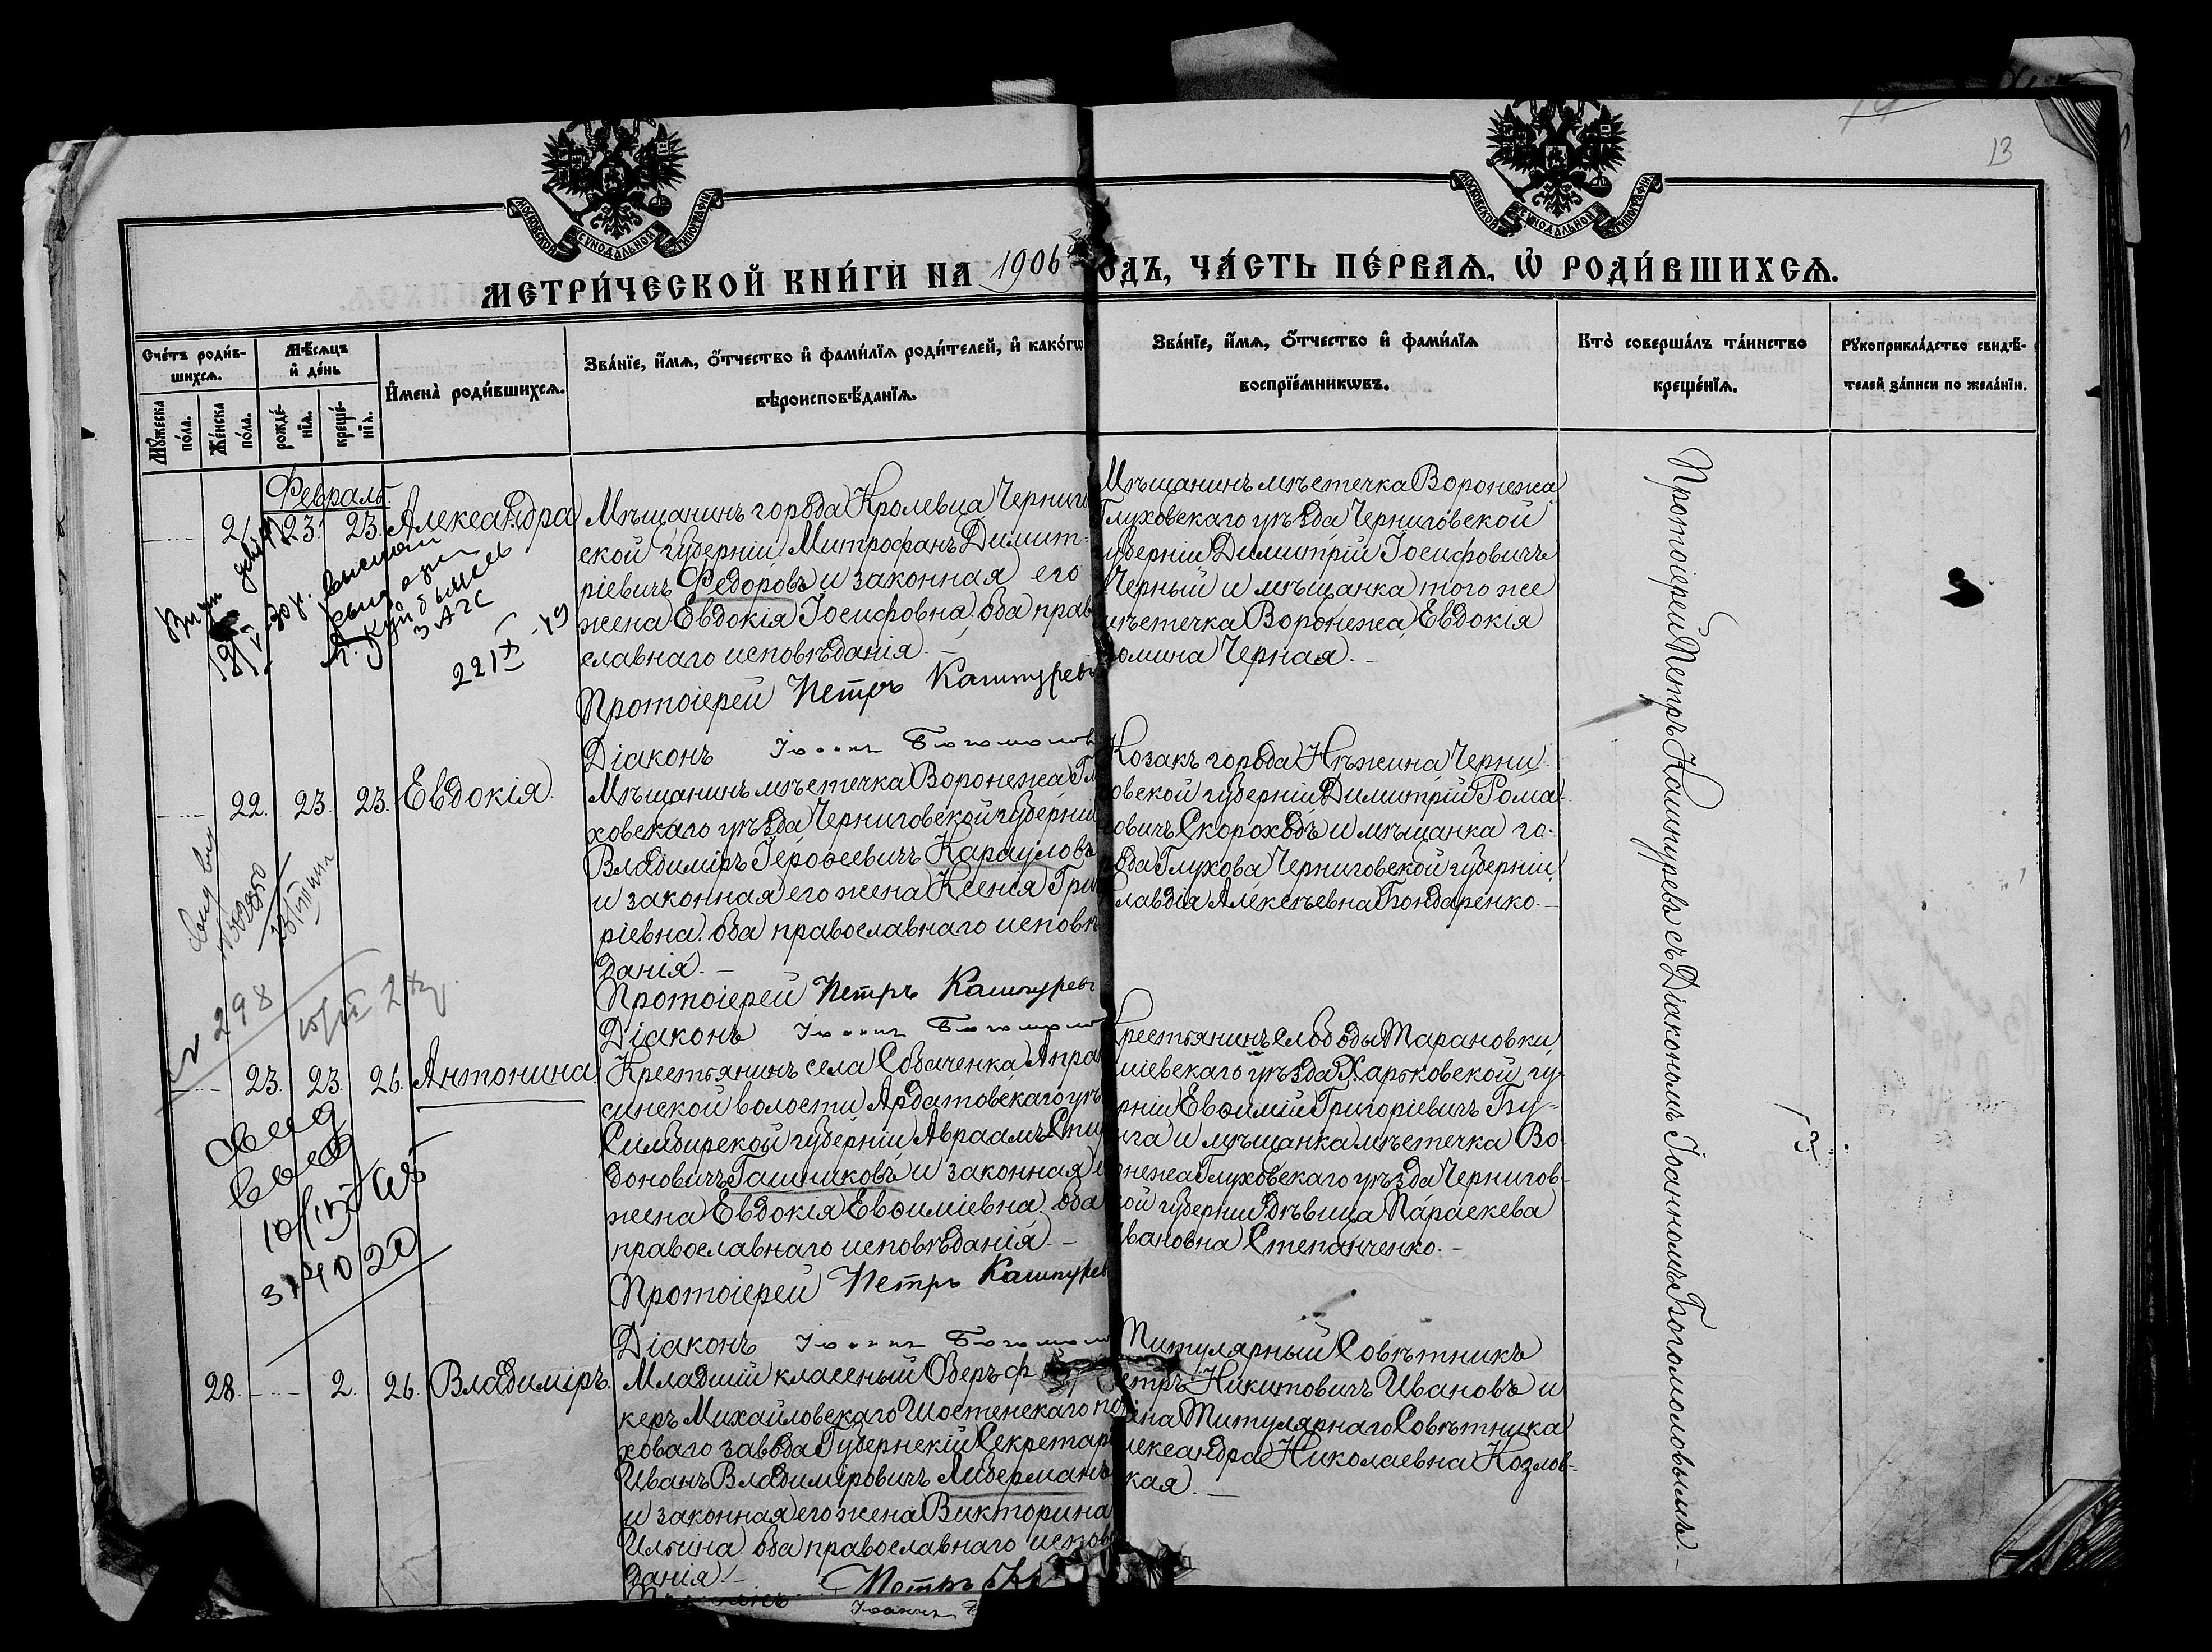 13
МОСКОВСКОЙ СУНОДАЛЬНОЙ ТИПОГРАФІИ
МОСКОВСКОЙ СУНОДАЛЬНОЙ ТИПОГРАФІИ
МЕТРИ́ЧЕСКОЙ КНИ́ГИ НА 1906 ОДЪ, ЧА́СТЬ ПЕ́РВАѦ, Ѡ РОДИ́ВШИХСѦ.
Сче́тъ роди́в-
шихсѧ.
Мꙋ́жеска
по́ла.
Же́нска
по́ла.
Мѣ́сѧцъ
и҆ де́нь
рожде́-
нїѧ.
креще́-
нїѧ.
И҆мена̀ роди́вшихсѧ.
Зва́нїе, и҆́мѧ, ѻ҆́тчество и҆ фами́лїѧ роди́телей, и҆ како́гѡ
вѣроисповѣ́данїѧ.
Зва́нїе, и҆́мѧ, ѻ҆́тчество и҆ фами́лїѧ
воспрїе́мникѡвъ.
Кто̀ соверша́лъ та́инство
креще́нїѧ.
Рꙋкоприкла́дство свидѣ́-
телей за́писи по жела́нїю.
Февраль.
21. 23. 23. Александра
Мѣщанинъ города Кролевца Черниг
ской губерніи Митрофанъ Димит-
ріевичъ Федоровъ и законная его
жена Евдокія Іосифовна. оба прав
славнаго исповѣданія. –
Протоіерей Петръ Кашпуревъ
Діаконъ Іоаннъ Богомолов
Мѣщанинъ мѣстечка Воронежа
Глуховскаго уѣзда Черниговской
уберніи Димитрій Іосифовичъ
Черный и мѣщанка того же
мѣстечка Воронежа Евдокія
омина Черная. –
г. Куйбышев
ЗАГС
22/IX-49
22. 23. 23. Евдокія.
Мѣщанинъ мѣстечка Воронежа Гл
ховскаго уѣзда Черниговской губерніи
Владиміръ Іероѳеевичъ Карауловъ
и законная его жена Ксенія Гри
ріевна. оба православнаго исповѣ
данія. –
Протоіерей Петръ Кашпурев
Діаконъ Іоаннъ Богомоло
Козакъ города Нѣжина Черни-
овской губерніи Димитрій Рома-
овичъ Скороходъ и мѣщанка го-
ода Глухова Черниговской губерніи,
лавдія Алексѣевна Бондаренко. –
N 298
23. 23. 26. Антонина.
Крестьянинъ села Собаченка Апра
синской волости Ардатовскаго уѣ
Симбирской губерніи Авраамъ Спи
доновичъ Гашниковъ и законная е
жена Евдокія Евѳиміевна. оба
православнаго исповѣданія. –
Протоіерей Петръ Кашпурев
Діаконъ Іоаннъ Богомол
Крестьянинъ слободы Тарановки,
міевскаго уѣзда Харьковской гу-
рніи Евѳимій Григоріевичъ Бу-
га и мѣщанка мѣстечка Во-
нежа Глуховскаго уѣзда Чернигов-
кой губерніи дѣвица Параскева
Ивановна Степанченко. –
28. 2. 26. Владиміръ
Младшій классный Оберъ ф
керъ Михайловскаго Шостенскаго по
ховаго завода Губернскій Секретар
Иванъ Владиміровичъ Либерманъ
и законная его жена Викторина
Ильина. оба православнаго испов
данія. –
Петръ
Іоаннъ
Титулярный Совѣтникъ
етръ Никитовичъ Ивановъ и
ена Титулярнаго Совѣтника
лександра Николаевна Козлов-
кая. –
Протоіерей Петръ Кашпуревъ съ Діакономъ Іоанномъ Богомоловымъ. –